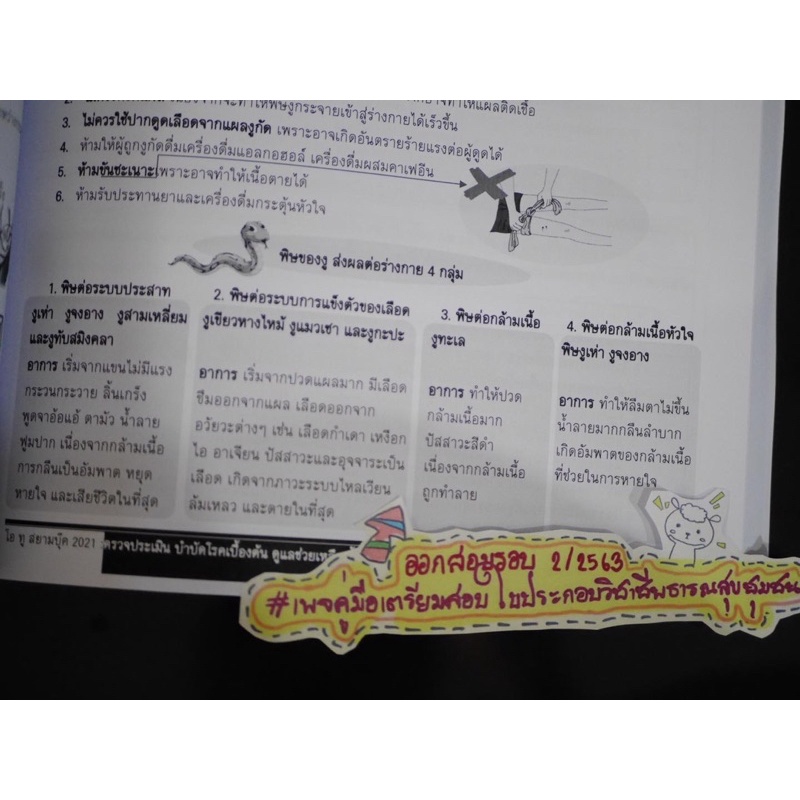 3. ไม่ควรใช้ปากดูดเลือดจากแผลงูกัด เพราะอาจเกิดอันตรายร้ายแรงต่อผู้ดูดได้
4. ห้ามให้ผู้ถูกงูกัดดื่มเครื่องดื่มแอลกอฮอล์ เครื่องดื่มผสมคาเฟอีน
5. ห้ามขันชะเนาะเพราะอาจทำให้เนื้อตายได้
6. ห้ามรับประทานยาและเครื่องดื่มกระตุ้นหัวใจ
พิษของงู ส่งผลต่อร่างกาย 4 กลุ่ม
1. พิษต่อระบบประสาท
งูเห่า งูจงอาง งูสามเหลี่ยม
และงูทับสมิงคลา
อาการ เริ่มจากแขนไม่มีแรง
กระวนกระวาย ลิ้นเกร็ง
พูดจาอ้อแอ้ ตามัว น้ำลาย
ฟูมปาก เนื่องจากกล้ามเนื้อ
การกลืนเป็นอัมพาต หยุด
หายใจ และเสียชีวิตในที่สุด
2. พิษต่อระบบการแข็งตัวของเลือด
งูเขียวหางไหม้ งูแมวเซา และงูกะปะ
อาการ เริ่มจากปวดแผลมาก มีเลือด
ซึมออกจากแผล เลือดออกจาก
อวัยวะต่างๆ เช่น เลือดกำเดา เหงือก
ไอ อาเจียน ปัสสาวะและอุจจาระเป็น
เลือด เกิดจากภาวะระบบไหลเวียน
ล้มเหลว และตายในที่สุด
3. พิษต่อกล้ามเนื้อ
งูทะเล
อาการ ทำให้ปวด
กล้ามเนื้อมาก
ปัสสาวะสีดำ
เนื่องจากกล้ามเนื้อ
ถูกทำลาย
4. พิษต่อกล้ามเนื้อหัวใจ
พิษงูเห่า งูจงอาง
อาการ ทำให้ลืมตาไม่ขึ้น
น้ำลายมากกลืนลำบาก
เกิดอัมพาตของกล้ามเนื้อ
ที่ช่วยในการหายใจ
ไอ ทู สยามบุ๊ค 2021 ตรวจประเมิน บำบัดโรคเบื้องต้น ดูแลช่วยเหลือ
ออกสอบรอบ 2/2563
#เพจคู่มือเตรียมสอบ ใบประกอบวิชาชีพสาธารณสุขชุมชน